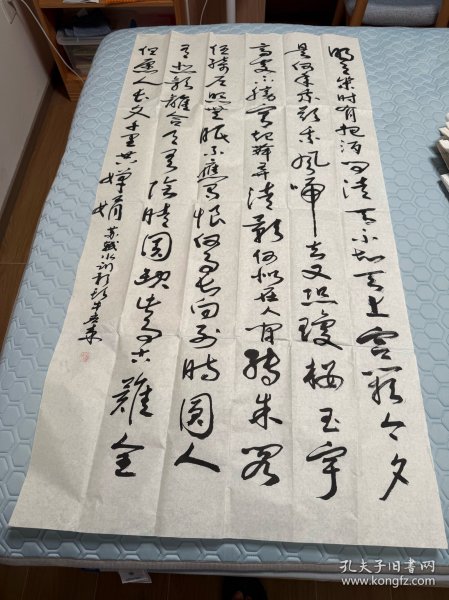 明月幾时有把酒问清天不知天上宫阙今夕
是何年我欲乘风归去又恐瓊楼玉宇
高处不胜寒起舞弄清影何似在人间转朱阁
低绮户照无眠不應有恨何事长向别时圆人
有悲歡離合月有陰晴圆缺此事古難全
但愿人长久千里共婵娟 苏轼水调歌头
孔夫子旧书网
www.kongfz.com